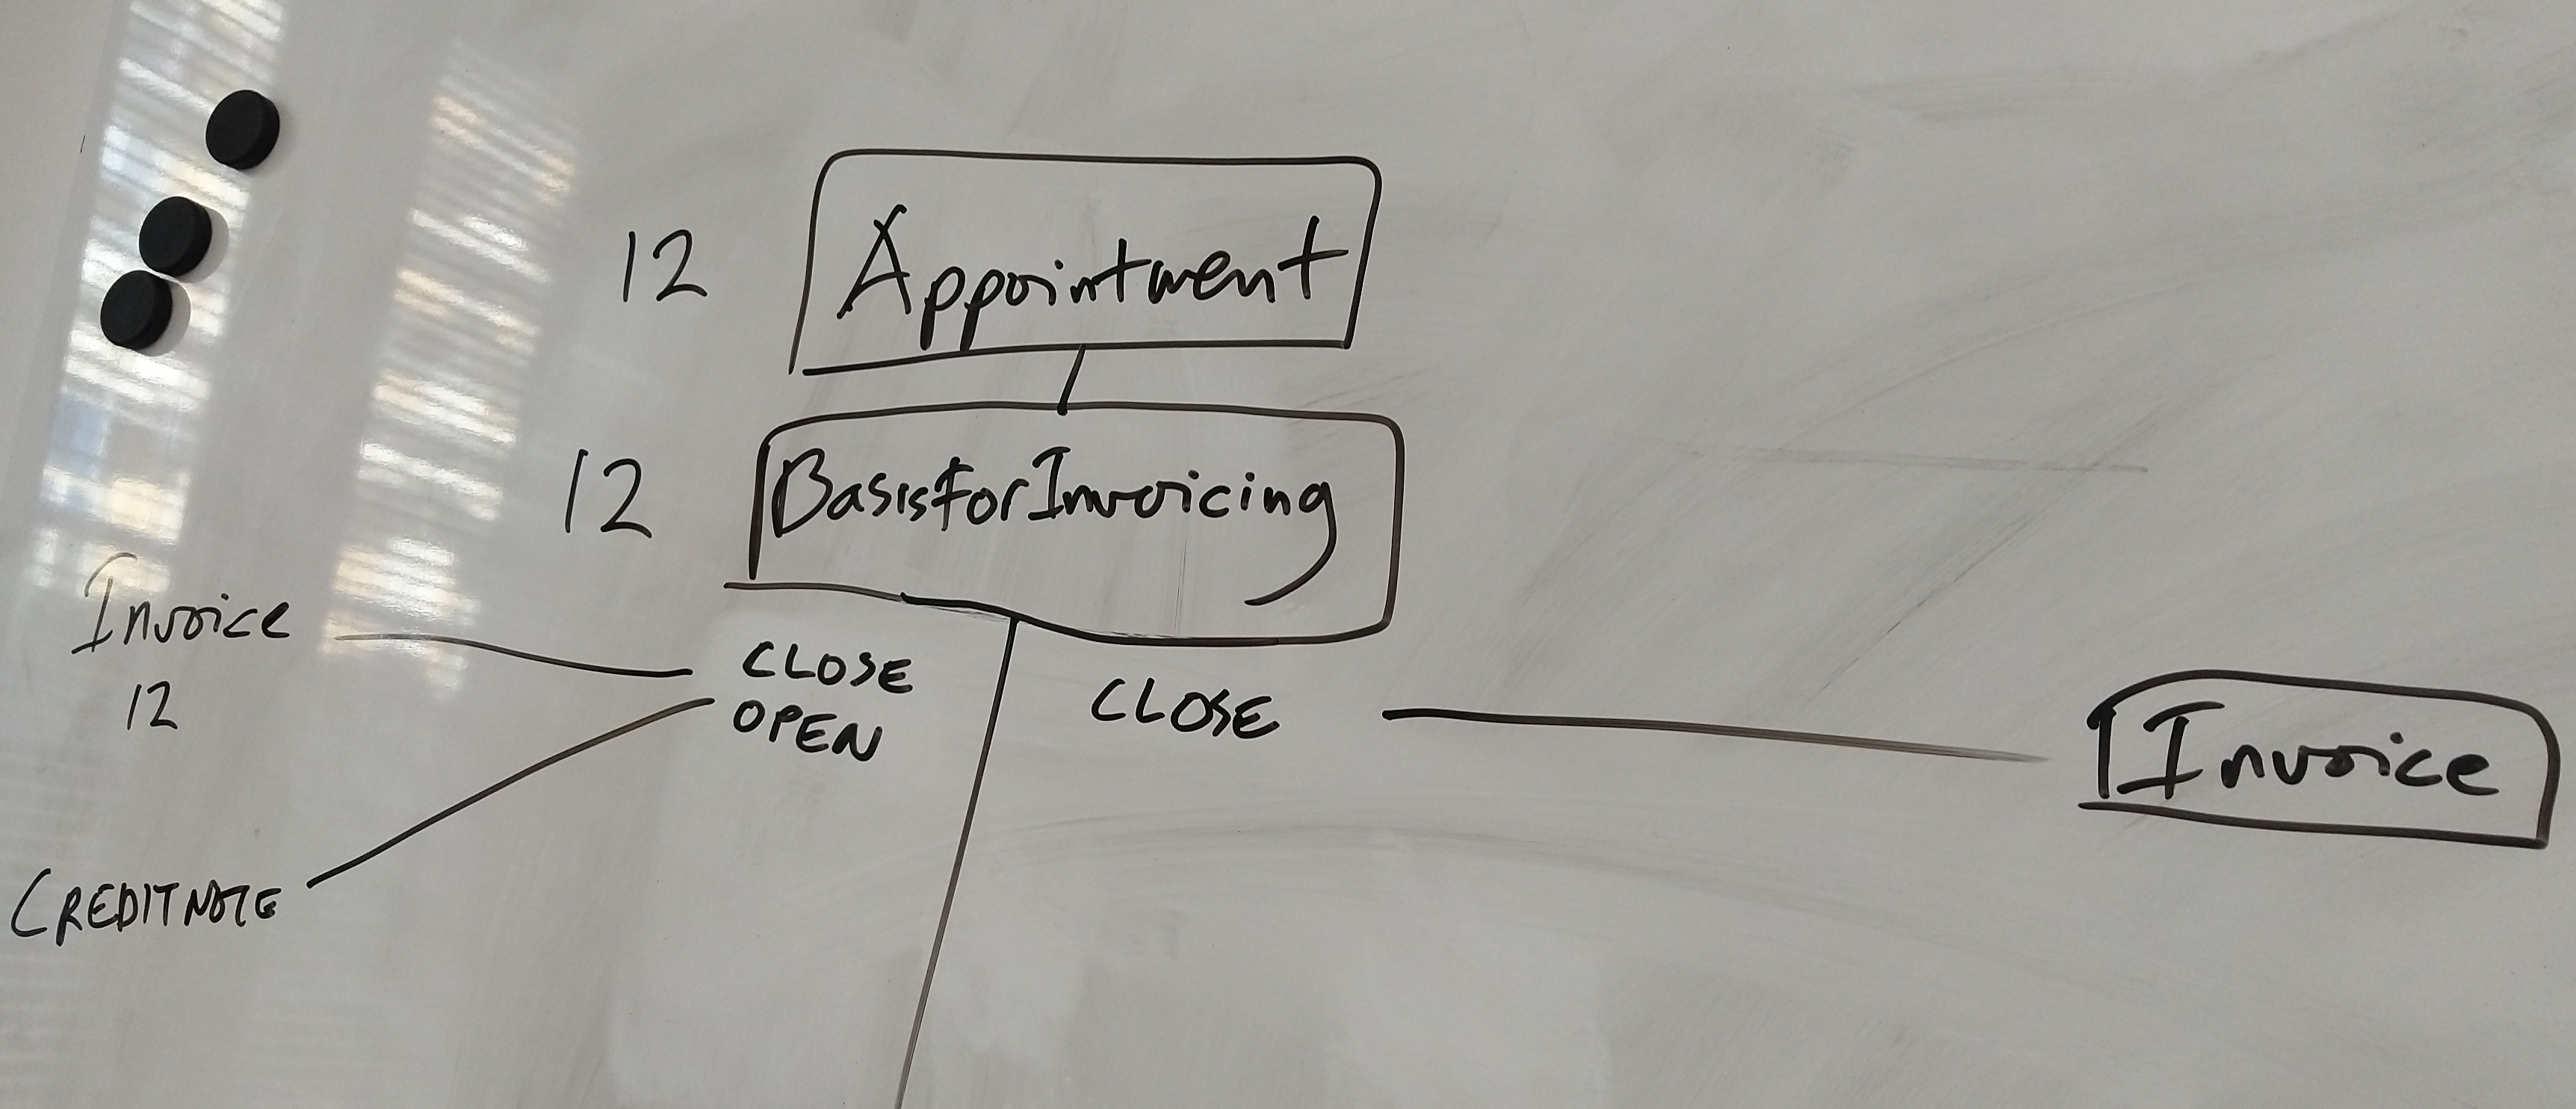 12
Appointment
12
BasisForInvoicing
Invoice
12
CLOSE
OPEN
CLOSE
Invoice
CREDITNOTE